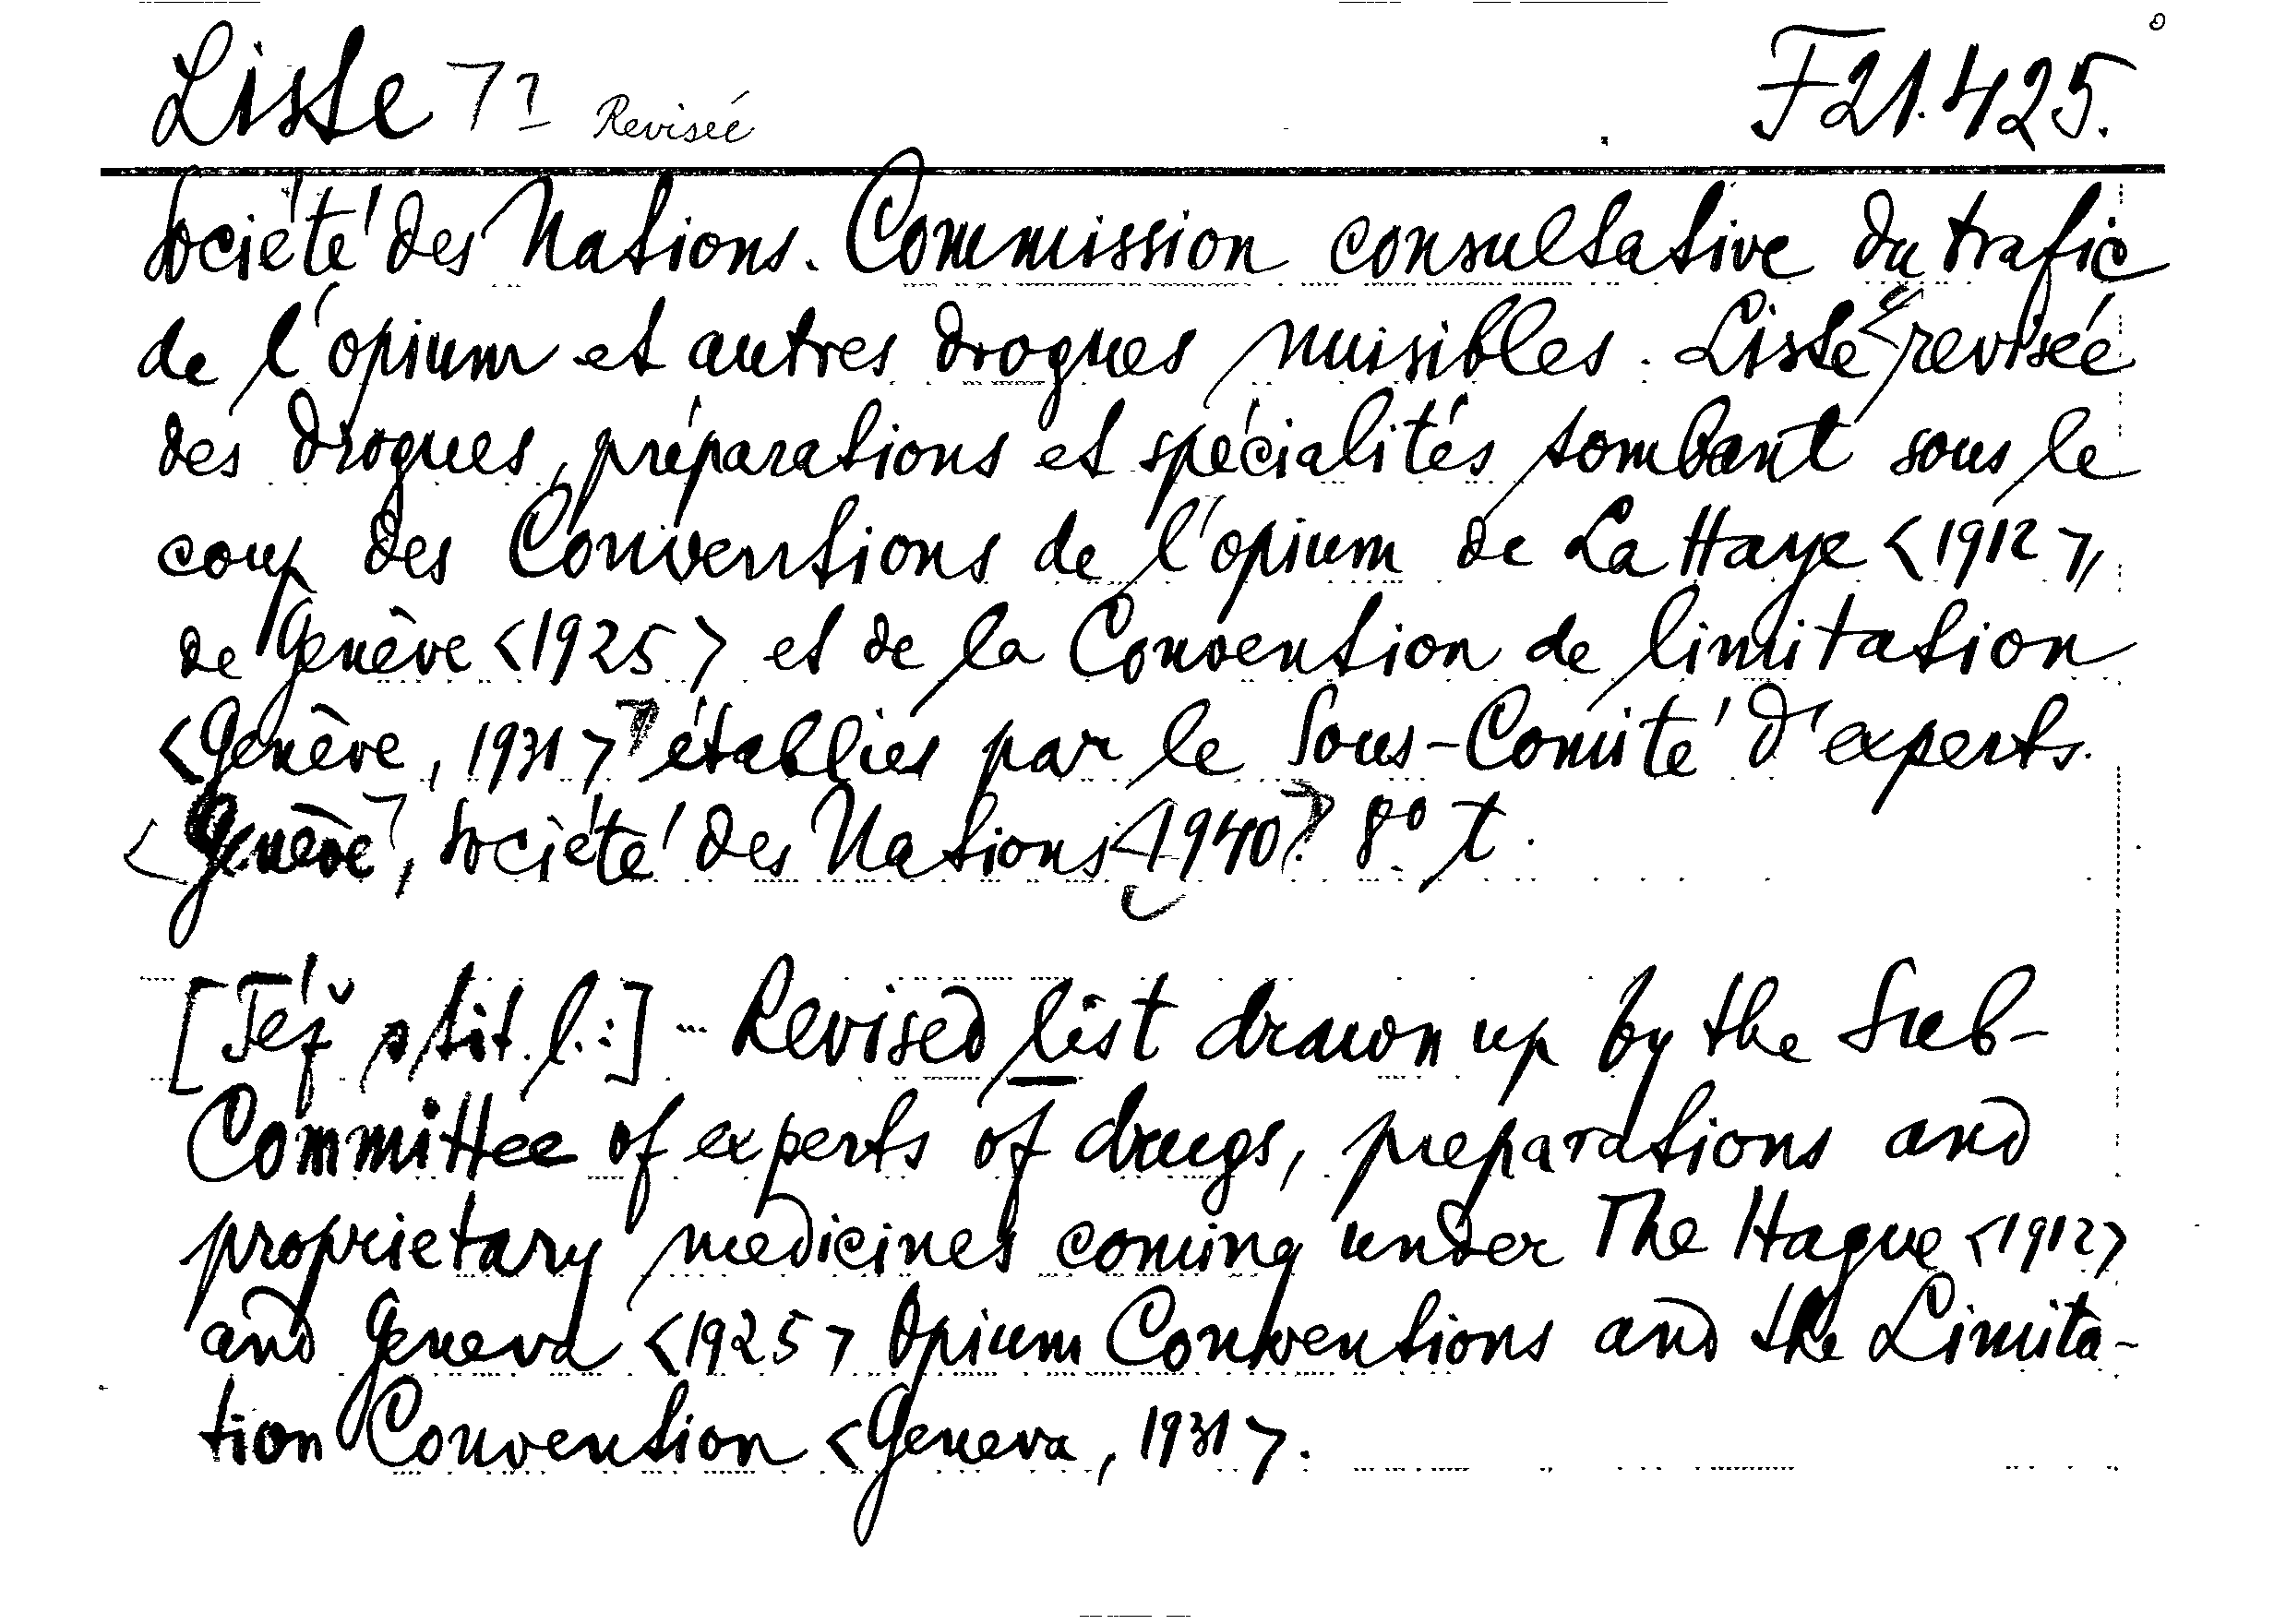 Liste Revisée F21.425.
Société des Nations. Commission consultative du trafic
de l'opium et autres drogues nuisibles. Liste revisée
des drogues, préparations et spécialités tombant sous le
coup des Conventions de l'opium de La Haye <1912>,
de Genève <1925> et de la Convention de limitation
<Genève, 1931> établies par le Sous-Comité d'experts.
<Genève>, Société des Nations <1940>. 8° t.
[Též s tit. l.:] - Revised list drawn up by the Sub-
Committee of experts of drugs, preparations and
proprietary medicines coming under The Hague <1912>
and Geneva <1925> Opium Conventions and the Limita-
tion Convention <Geneva, 1931>.